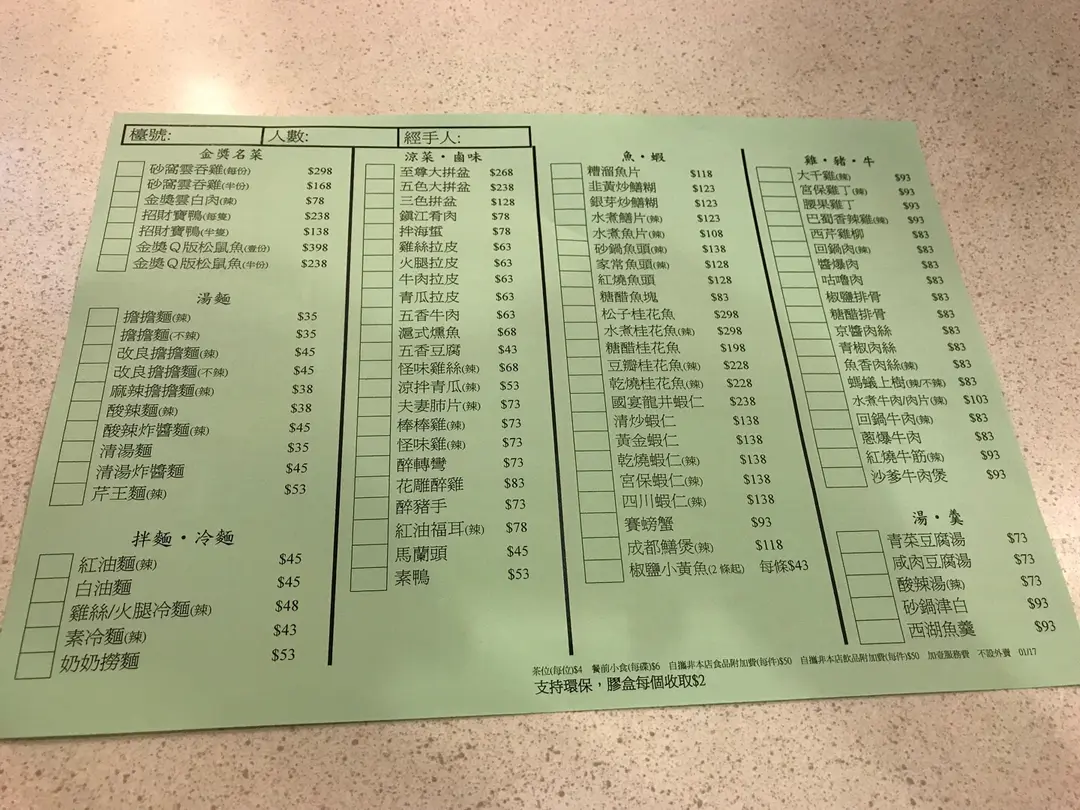 檯號: 人數: 經手人:
金獎名菜
砂窩雲吞雞(每份) $298
砂窩雲吞雞(半份) $168
金獎雲白肉(辣) $78
招財寶鴨(每隻) $238
招財寶鴨(半隻) $138
金獎Q版松鼠魚(壹份) $398
金獎Q版松鼠魚(半份) $238
湯麵
擔擔麵(辣) $35
擔擔麵(不辣) $35
改良擔擔麵(辣) $45
改良擔擔麵(不辣) $45
麻辣擔擔麵(辣) $38
酸辣麵(辣) $38
酸辣炸醬麵(辣) $45
清湯麵 $35
清湯炸醬麵 $45
芹王麵(辣) $53
拌麵・冷麵
紅油麵(辣) $45
白油麵 $45
雞絲/火腿冷麵(辣) $48
素冷麵(辣) $43
奶奶撈麵 $53
涼菜・鹵味
至尊大拼盆 $268
五色大拼盆 $238
三色拼盆 $128
鎮江肴肉 $78
拌海蜇 $78
雞絲拉皮 $63
火腿拉皮 $63
牛肉拉皮 $63
青瓜拉皮 $63
五香牛肉 $63
滬式燻魚 $68
五香豆腐 $43
怪味雞絲(辣) $68
涼拌青瓜(辣) $53
夫妻肺片(辣) $73
棒棒雞(辣) $73
怪味雞(辣) $73
醉轉彎 $73
花雕醉雞 $83
醉豬手 $73
紅油福耳(辣) $78
馬蘭頭 $45
素鴨 $53
魚・蝦
糟溜魚片 $118
韭黃炒鱔糊 $123
銀芽炒鱔糊 $123
水煮鱔片(辣) $123
水煮魚片(辣) $108
砂鍋魚頭(辣) $138
家常魚頭(辣) $128
紅燒魚頭 $128
糖醋魚塊 $83
松子桂花魚 $298
水煮桂花魚(辣) $298
糖醋桂花魚 $198
豆瓣桂花魚(辣) $228
乾燒桂花魚(辣) $228
國宴龍井蝦仁 $238
清炒蝦仁 $138
黃金蝦仁 $138
乾燒蝦仁(辣) $138
宮保蝦仁(辣) $138
四川蝦仁(辣) $138
賽螃蟹 $93
成都鱔煲(辣) $118
椒鹽小黃魚(2 條起) 每條$43
雞・豬・牛
大千雞(辣) $93
宮保雞丁(辣) $93
腰果雞丁 $93
巴蜀香辣雞(辣) $93
西芹雞柳 $83
回鍋肉(辣) $83
醬爆肉 $83
咕嚕肉 $83
椒鹽排骨 $83
糖醋排骨 $83
京醬肉絲 $83
青椒肉絲 $83
魚香肉絲(辣) $83
螞蟻上樹(辣/不辣) $83
水煮牛肉/肉片(辣) $103
回鍋牛肉(辣) $83
蔥爆牛肉 $83
紅燒牛筋(辣) $93
沙爹牛肉煲 $93
湯・羹
青菜豆腐湯 $73
咸肉豆腐湯 $73
酸辣湯(辣) $73
砂鍋津白 $93
西湖魚羹 $93
茶位(每位)$4 餐前小食(每碟)$6 自攜非本店食品附加費(每件)$50 自攜非本店飲品附加費(每件)$50 加壹服務費 不設外賣 01/17
支持環保，膠盒每個收取$2